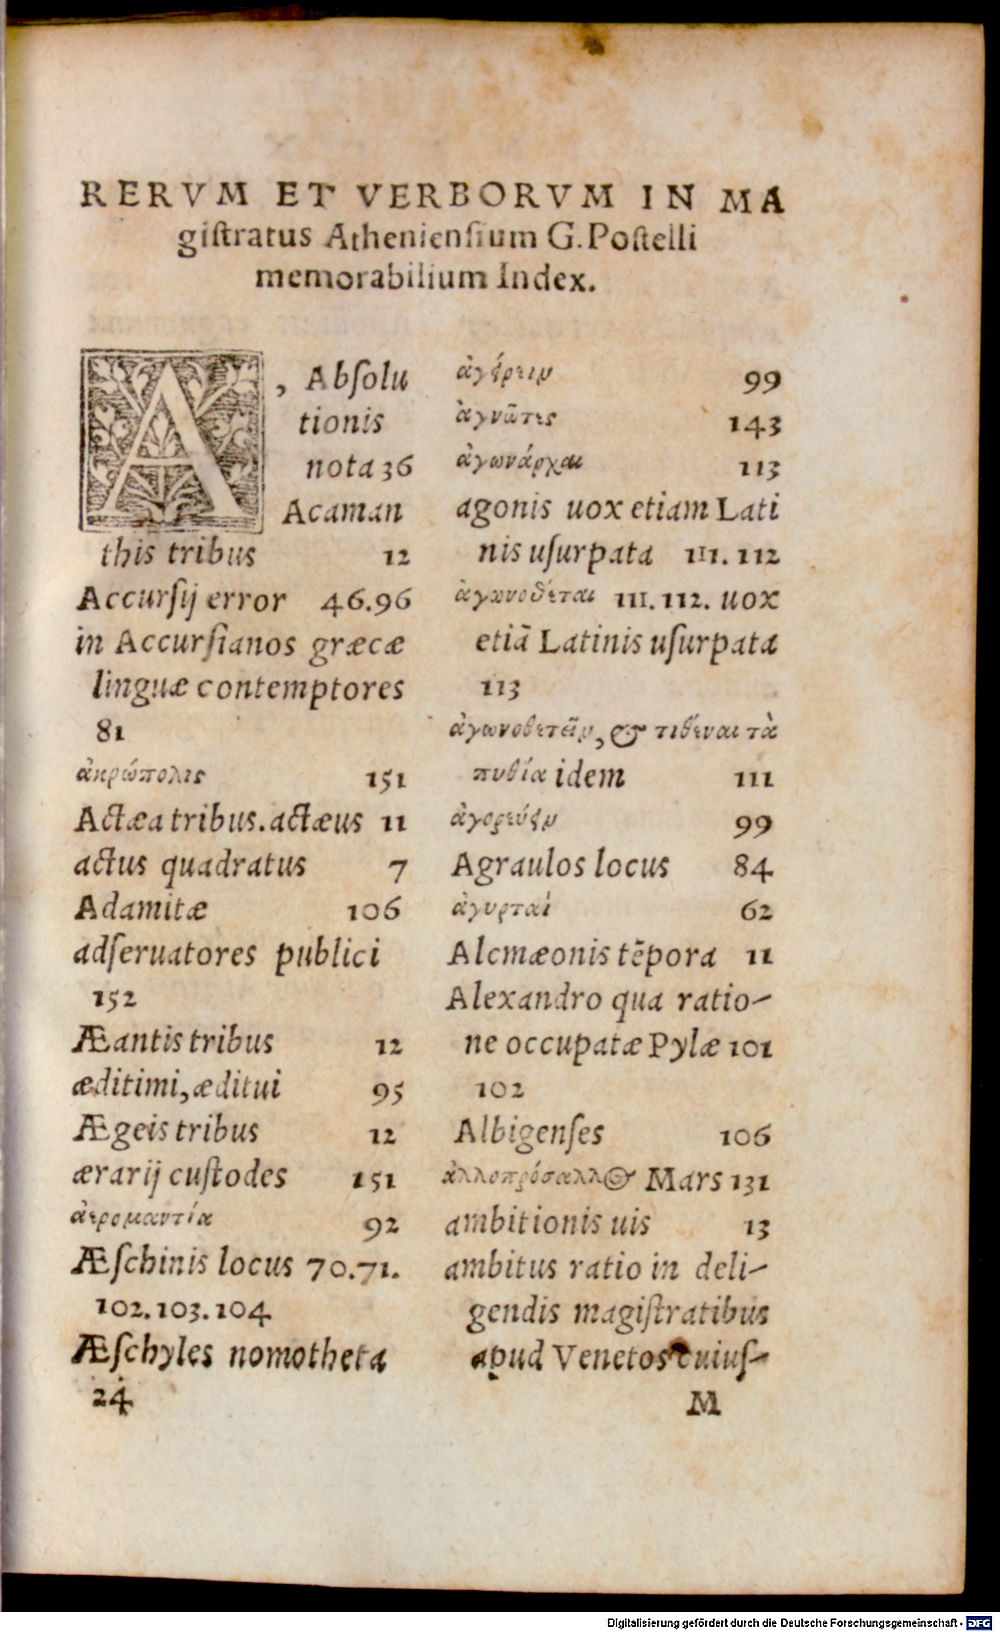 RERVM ET VERBORVM IN MA
giſtratus Athenienſium G. Poſtelli
memorabilium Index.
A, Abſolu
tionis
nota 36
Acaman
this tribus 12
Accurſij error 46.96
in Accurſianos græcæ
linguæ contemptores
81
ἀκρώπολις 151
Actæa tribus. actæus 11
actus quadratus 7
Adamitæ 106
adſeruatores publici
152
Æantis tribus 12
æditimi, æditui 95
Ægeis tribus 12
ærarij cuſtodes 151
ἀερομαντία 92
Æſchinis locus 70.71.
102.103.104
Æſchyles nomotheta
24
ἀγείρειν 99
ἀγνῶτες 143
ἀγωνάρχαι 113
agonis uox etiam Lati
nis uſurpata 111. 112
ἀγωνοθέται 111.112. uox
etiā Latinis uſurpata
113
ἀγωνοθετεῖν, & τιθέναι τὰ
πυθία idem 111
ἀγορεύειν 99
Agraulos locus 84
ἀγυρταὶ 62
Alcmæonis tẽpora 11
Alexandro qua ratio-
ne occupatæ Pylæ 101
102
Albigenſes 106
ἀλλοπρόσαλλος Mars 131
ambitionis uis 13
ambitus ratio in deli-
gendis magiſtratibus
apud Venetos cuiuſ-
M
Digitalisierung gefördert durch die Deutsche Forschungsgemeinschaft - DFG